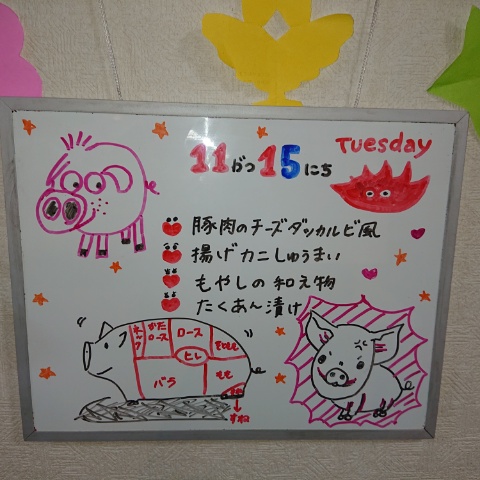 Tuesday
11がつ15にち
豚肉のチーズダッカルビ風
揚げカニしゅうまい
もやしの和え物
たくあん漬け
ネック
かたロース
ロース
ヒレ
そともも
バラ
もも
すね